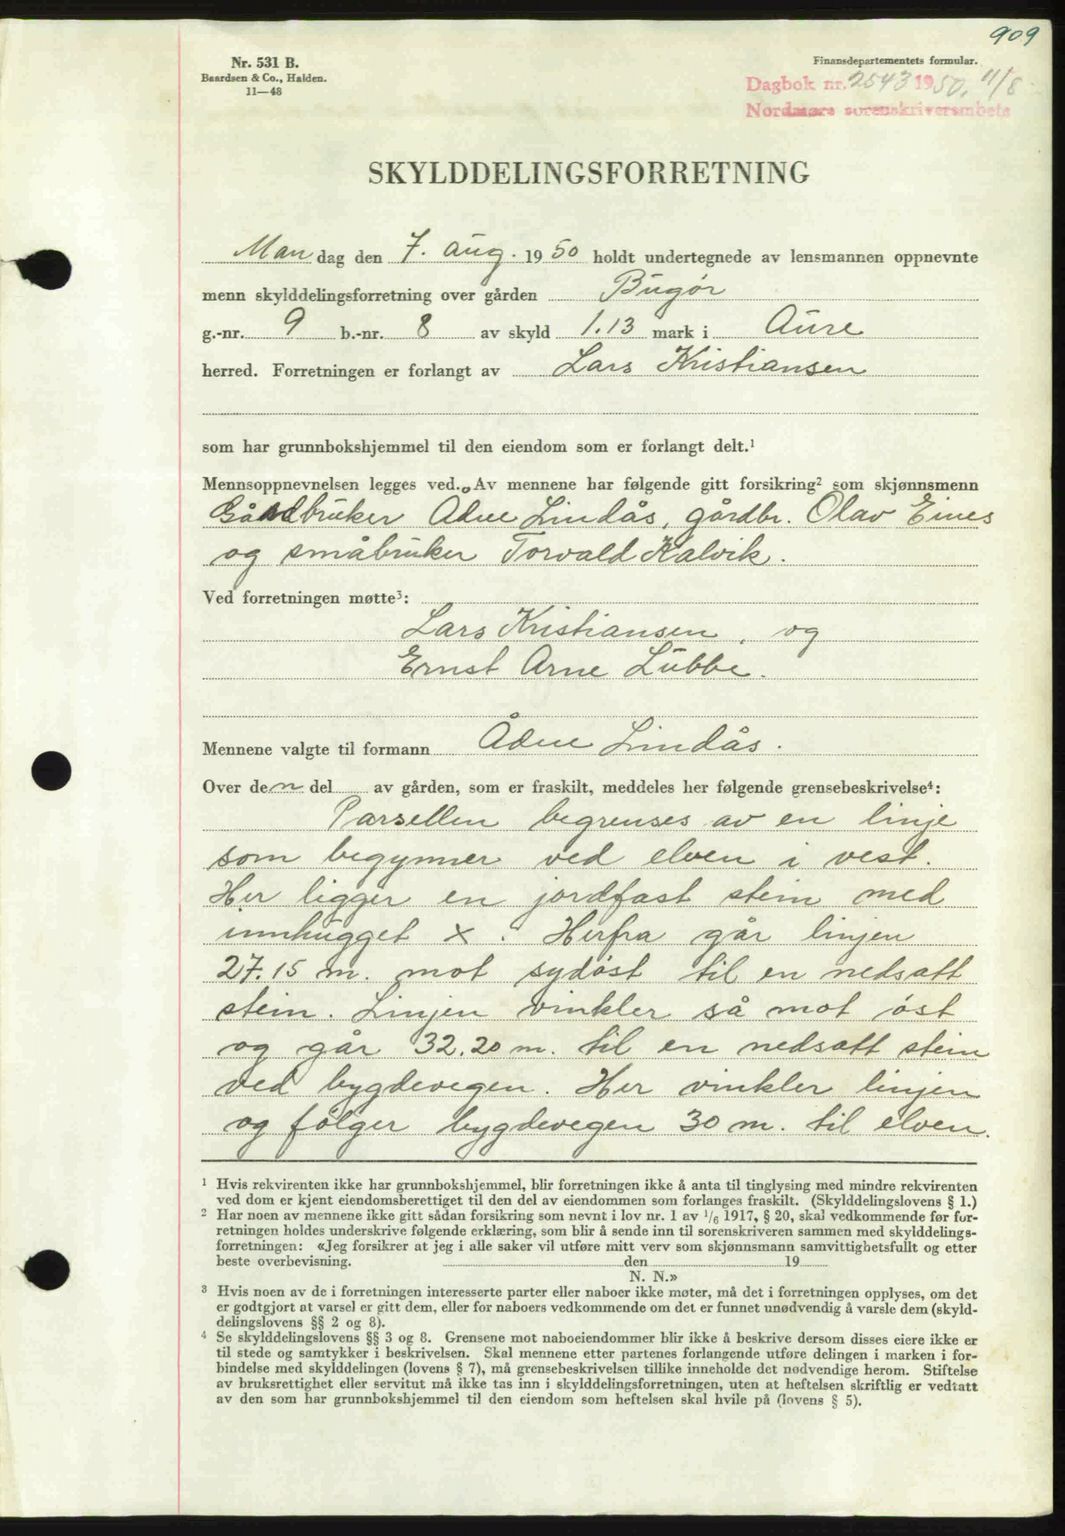 909
Nr. 531 B.
Baardsen & Co., Halden.
11—48
Finansdepartementets formular.
Dagbok nr. 2543 1950. 11/8
Nordmøre sorenskriverembete
SKYLDDELINGSFORRETNING
Mandag den 7. aug. 1950 holdt undertegnede av lensmannen oppnevnte
menn skylddelingsforretning over gården Bugør
g.-nr. 9 b.-nr. 8 av skyld 1.13 mark i Aure
herred. Forretningen er forlangt av Lars Kristiansen
som har grunnbokshjemmel til den eiendom som er forlangt delt.¹
Mennsoppnevnelsen legges ved. Av mennene har følgende gitt forsikring² som skjønnsmenn
Gårdbruker Ådne Lindås, gårdbr. Olav Eines
og småbruker Torvald Kalvik.
Ved forretningen møtte³:
Lars Kristiansen, og
Ernst Arne Lübbe.
Mennene valgte til formann Ådne Lindås.
Over den del av gården, som er fraskilt, meddeles her følgende grensebeskrivelse⁴:
Parsellen begrenses av en linje
som begynner ved elven i vest.
Her ligger en jordfast stein med
innhugget x. Herfra går linjen
27.15 m. mot sydøst til en nedsatt
stein. Linjen vinkler så mot øst
og går 32.20 m. til en nedsatt stein
ved bygdevegen. Her vinkler linjen
og følger bygdevegen 30 m. til elven.
¹ Hvis rekvirenten ikke har grunnbokshjemmel, blir forretningen ikke å anta til tinglysing med mindre rekvirenten
ved dom er kjent eiendomsberettiget til den del av eiendommen som forlanges fraskilt. (Skylddelingslovens § 1.)
² Har noen av mennene ikke gitt sådan forsikring som nevnt i lov nr. 1 av 1/6 1917, § 20, skal vedkommende før for-
retningen holdes underskrive følgende erklæring, som blir å sende inn til sorenskriveren sammen med skylddelings-
forretningen: «Jeg forsikrer at jeg i alle saker vil utføre mitt verv som skjønnsmann samvittighetsfullt og etter
beste overbevisning. den 19
N. N.»
³ Hvis noen av de i forretningen interesserte parter eller naboer ikke møter, må det i forretningen opplyses, om det
er godtgjort at varsel er gitt dem, eller for naboers vedkommende om det er funnet unødvendig å varsle dem (skyld-
delingslovens §§ 2 og 8).
⁴ Se skylddelingslovens §§ 3 og 8. Grensene mot naboeiendommer blir ikke å beskrive dersom disses eiere ikke er
til stede og samtykker i beskrivelsen. Skal mennene etter partenes forlangende utføre delingen i marken i for-
bindelse med skylddelingen (lovens § 7), må grensebeskrivelsen tillike inneholde det nødvendige herom. Stiftelse
av bruksrettighet eller servitut må ikke tas inn i skylddelingsforretningen, uten at heftelsen skriftlig er vedtatt
av den som har grunnbokshjemmel til den eiendom som heftelsen skal hvile på (lovens § 5).